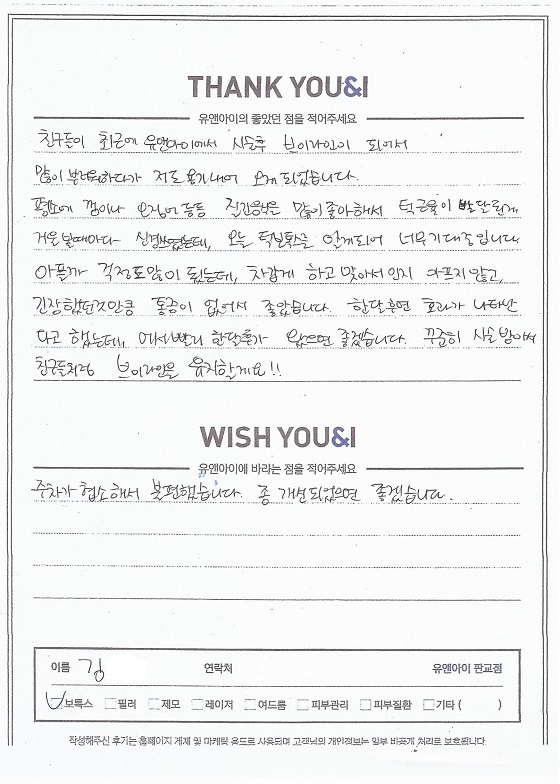 THANK YOU&I
유앤아이의 좋았던 점을 적어주세요
친구들이 최근에 유앤아이에서 시술후 브이라인이 되어서
많이 부러워하다가 저도 용기내어 오게되었습니다.
평소에 껌이나 오징어 등등 질긴음식은 많이 좋아해서 턱근육이 발달된게
거울볼때마다 신경쓰였는데, 오늘 턱보톡스를 맞게되어 너무 기대중입니다
아플까 걱정도많이 됬는데, 차갑게 하고 맞아서인지 아프지 않고,
긴장했던것만큼 통증이 없어서 좋았습니다. 한달후면 효과가 나타난
다고 했는데, 어서빨리 한달후가 왔으면 좋겠습니다. 꾸준히 시술 받아서
친구들처럼 브이라인을 유지할게요!!
WISH YOU&I
유앤아이에 바라는 점을 적어주세요
주차가 협소해서 불편했습니다. 좀 개선되었으면 좋겠습니다.
이름 김 연락처 유앤아이 판교점
보톡스 필러 제모 레이저 여드름 피부관리 피부질환 기타 ( )
작성해주신 후기는 홈페이지 게재 및 마케팅 용도로 사용되며 고객님의 개인정보는 일부 비공개 처리로 보호됩니다.